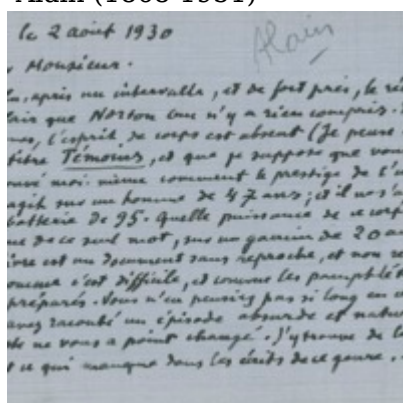 Alain (1868-1951)
le 2 août 1930
Alain
Monsieur.
, après un intervalle, et de fort près, le
que Norton Cru n'y a rien compris.
, l'esprit de corps est absent (Je pense
titre Témoins, et que je suppose que vous
moi-même comment le prestige de l'
agit sur un homme de 47 ans; et il
batterie de 95. Quelle puissance de ce corps
de ce seul mot, sur un gamin de 20 ans
est un document sans reproche, et non
c'est difficile, et comme les pamphlets
préparés. Vous n'en pensiez pas si long en
avez raconté un épisode absurde et
ne vous a point changé. J'y trouve de
ce qui manque dans les écrits de ce genre.